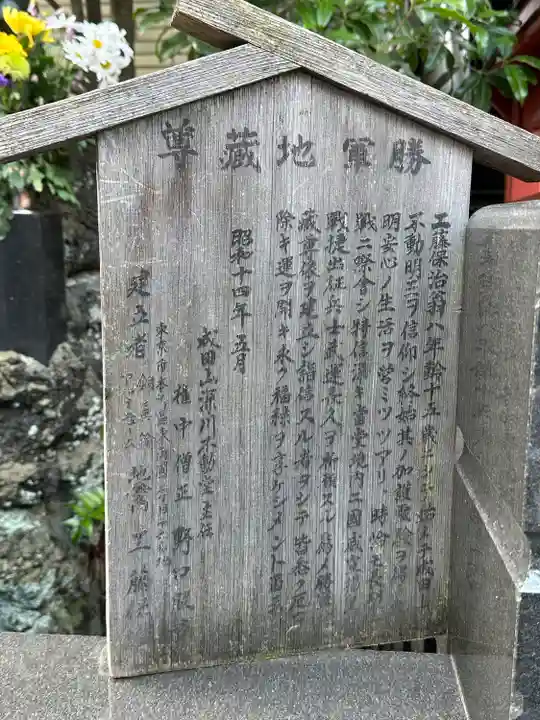 勝軍地蔵尊
工藤保治翁ハ年齢十五歳ニシテ始メテ成田山
不動明王ヲ信仰シ終始其ノ加護霊験ヲ
明安心ノ生活ヲ営ミツツアリ時恰モ
戦ニ際会シ特信 当堂境内ニ国威宣
戦捷出征兵士武運長久ヲ祈願スル為メ勝軍地
蔵尊像ヲ建立シ詣信スル者ヲシテ皆悉ク厄ヲ
除キ運ヲ開キ永ク福禄ヲ享ケシメント
昭和十四年五月
成田山深川不動堂主任
権中僧正 野口
東京市本所区東両国二丁目十六番地
建立者 工藤保